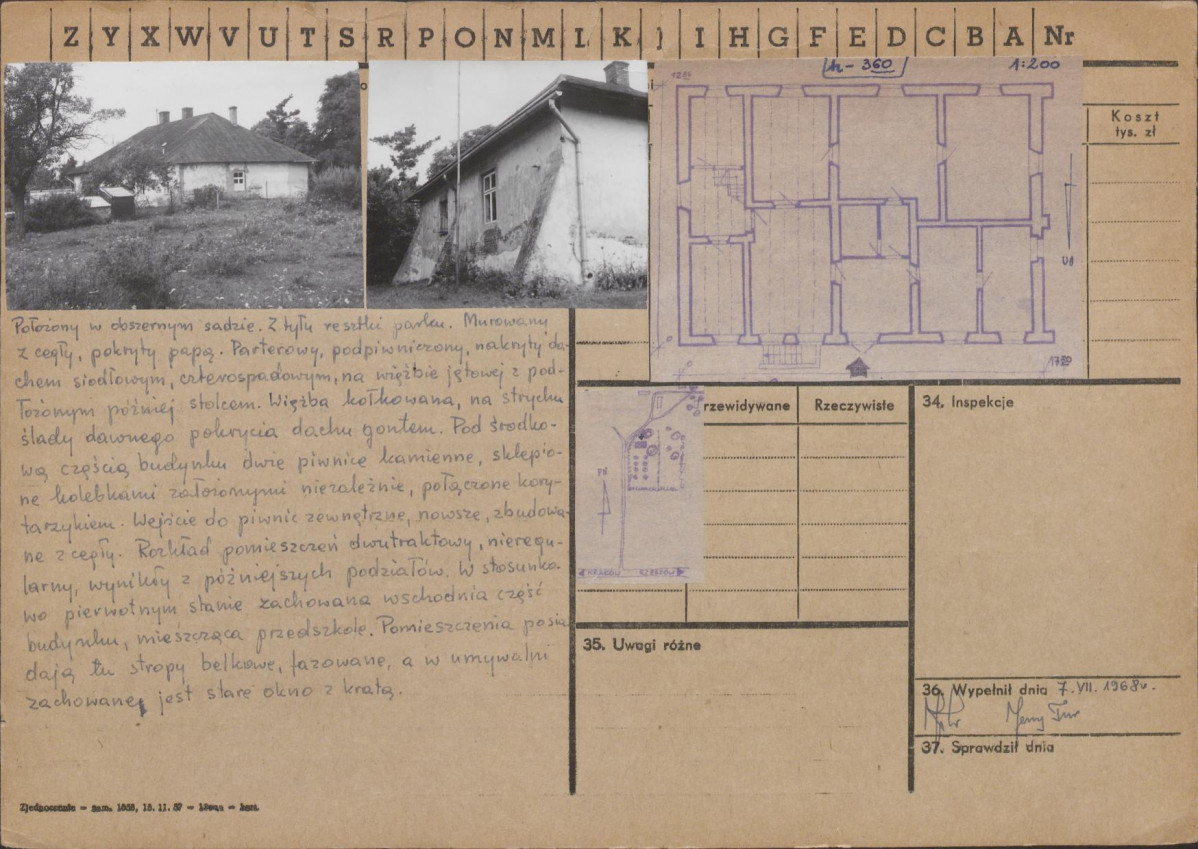 Z Y X W V U T S R P O N M L K J I H G F E D C B A Nr
h-360
1:200
Koszt
tys. zł
Położony w obszernym sadzie. Z tyłu resztki parku. Murowany
z cegły, pokryty papą. Parterowy, podpiwniczony, nakryty da-
chem siodłowym, czterospadowym, na więźbie jętowej z pod-
łożonym później stolcem. Więźba kołkowana, na strychu
ślady dawnego pokrycia dachu gontem. Pod środko-
wą częścią budynku dwie piwnice kamienne, sklepio-
ne kolebkami założonymi niezależnie, połączone kory-
tarzykiem. Wejście do piwnic zewnętrzne, nowsze, zbudowa-
ne z cegły. Rozkład pomieszczeń dwutraktowy, nieregu-
larny, wynikły z późniejszych podziałów. W stosunko-
wo pierwotnym stanie zachowana wschodnia część
budynku, mieszcząca przedszkole. Pomieszczenia posia
dają tu stropy belkowe, fazowane, a w umywalni
zachowane jest stare okno z kratą.
1720
rzewidywane
Rzeczywiste
KRAKÓW RZESZÓW
34. Inspekcje
35. Uwagi różne
36. Wypełnił dnia 7.VII.1968r.
37. Sprawdził dnia
Zjednoczenie